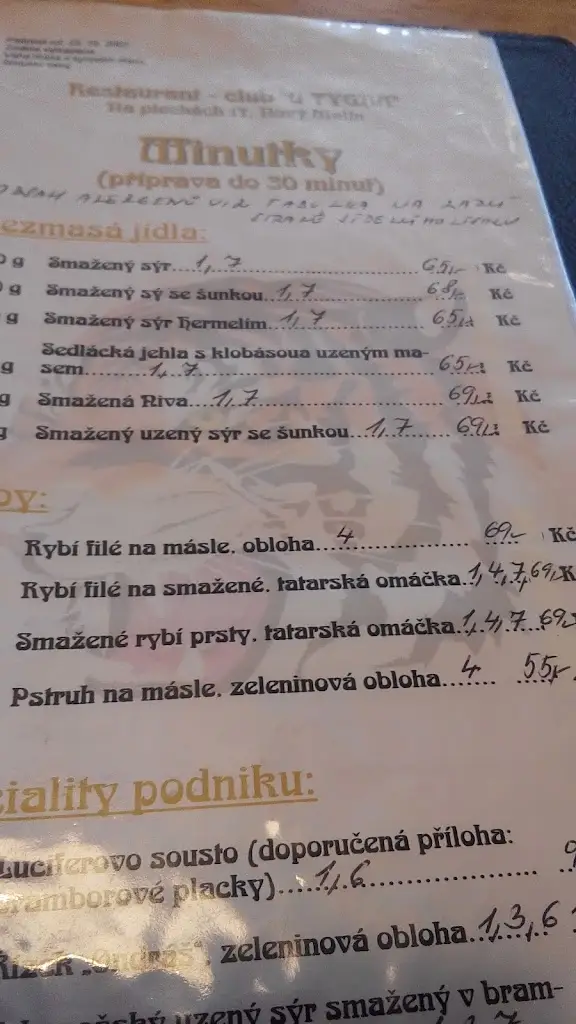 Restaurant - club "U TYGRA"
Na plechách 17, Nový Malín
Minutky
(příprava do 30 minut)
ezmasá jídla:
g Smažený sýr....1, 7.... 65,- Kč
g Smažený sý se šunkou..1, 7.... 68,- Kč
g Smažený sýr Hermelím..1, 7.... 65,- Kč
Sedlácká jehla s klobásoua uzeným ma-
g sem........1, 7.... 65,- Kč
g Smažená Niva...1, 7.... 69,- Kč
g Smažený uzený sýr se šunkou..1, 7.... 69,- Kč
by:
Rybí filé na másle, obloha...4.... 69,- Kč
Rybí filé na smažené, tatarská omáčka.1, 4, 7, 69,- K
Smažené rybí prsty, tatarská omáčka..1, 4, 7 69,-
Pstruh na másle, zeleninová obloha...4.... 55,-
ciality podniku:
Luciferovo sousto (doporučená příloha:
bramborové placky)....1, 6....
Řízek „Ondráš", zeleninová obloha..1, 3, 6
uzený sýr smažený v bram-